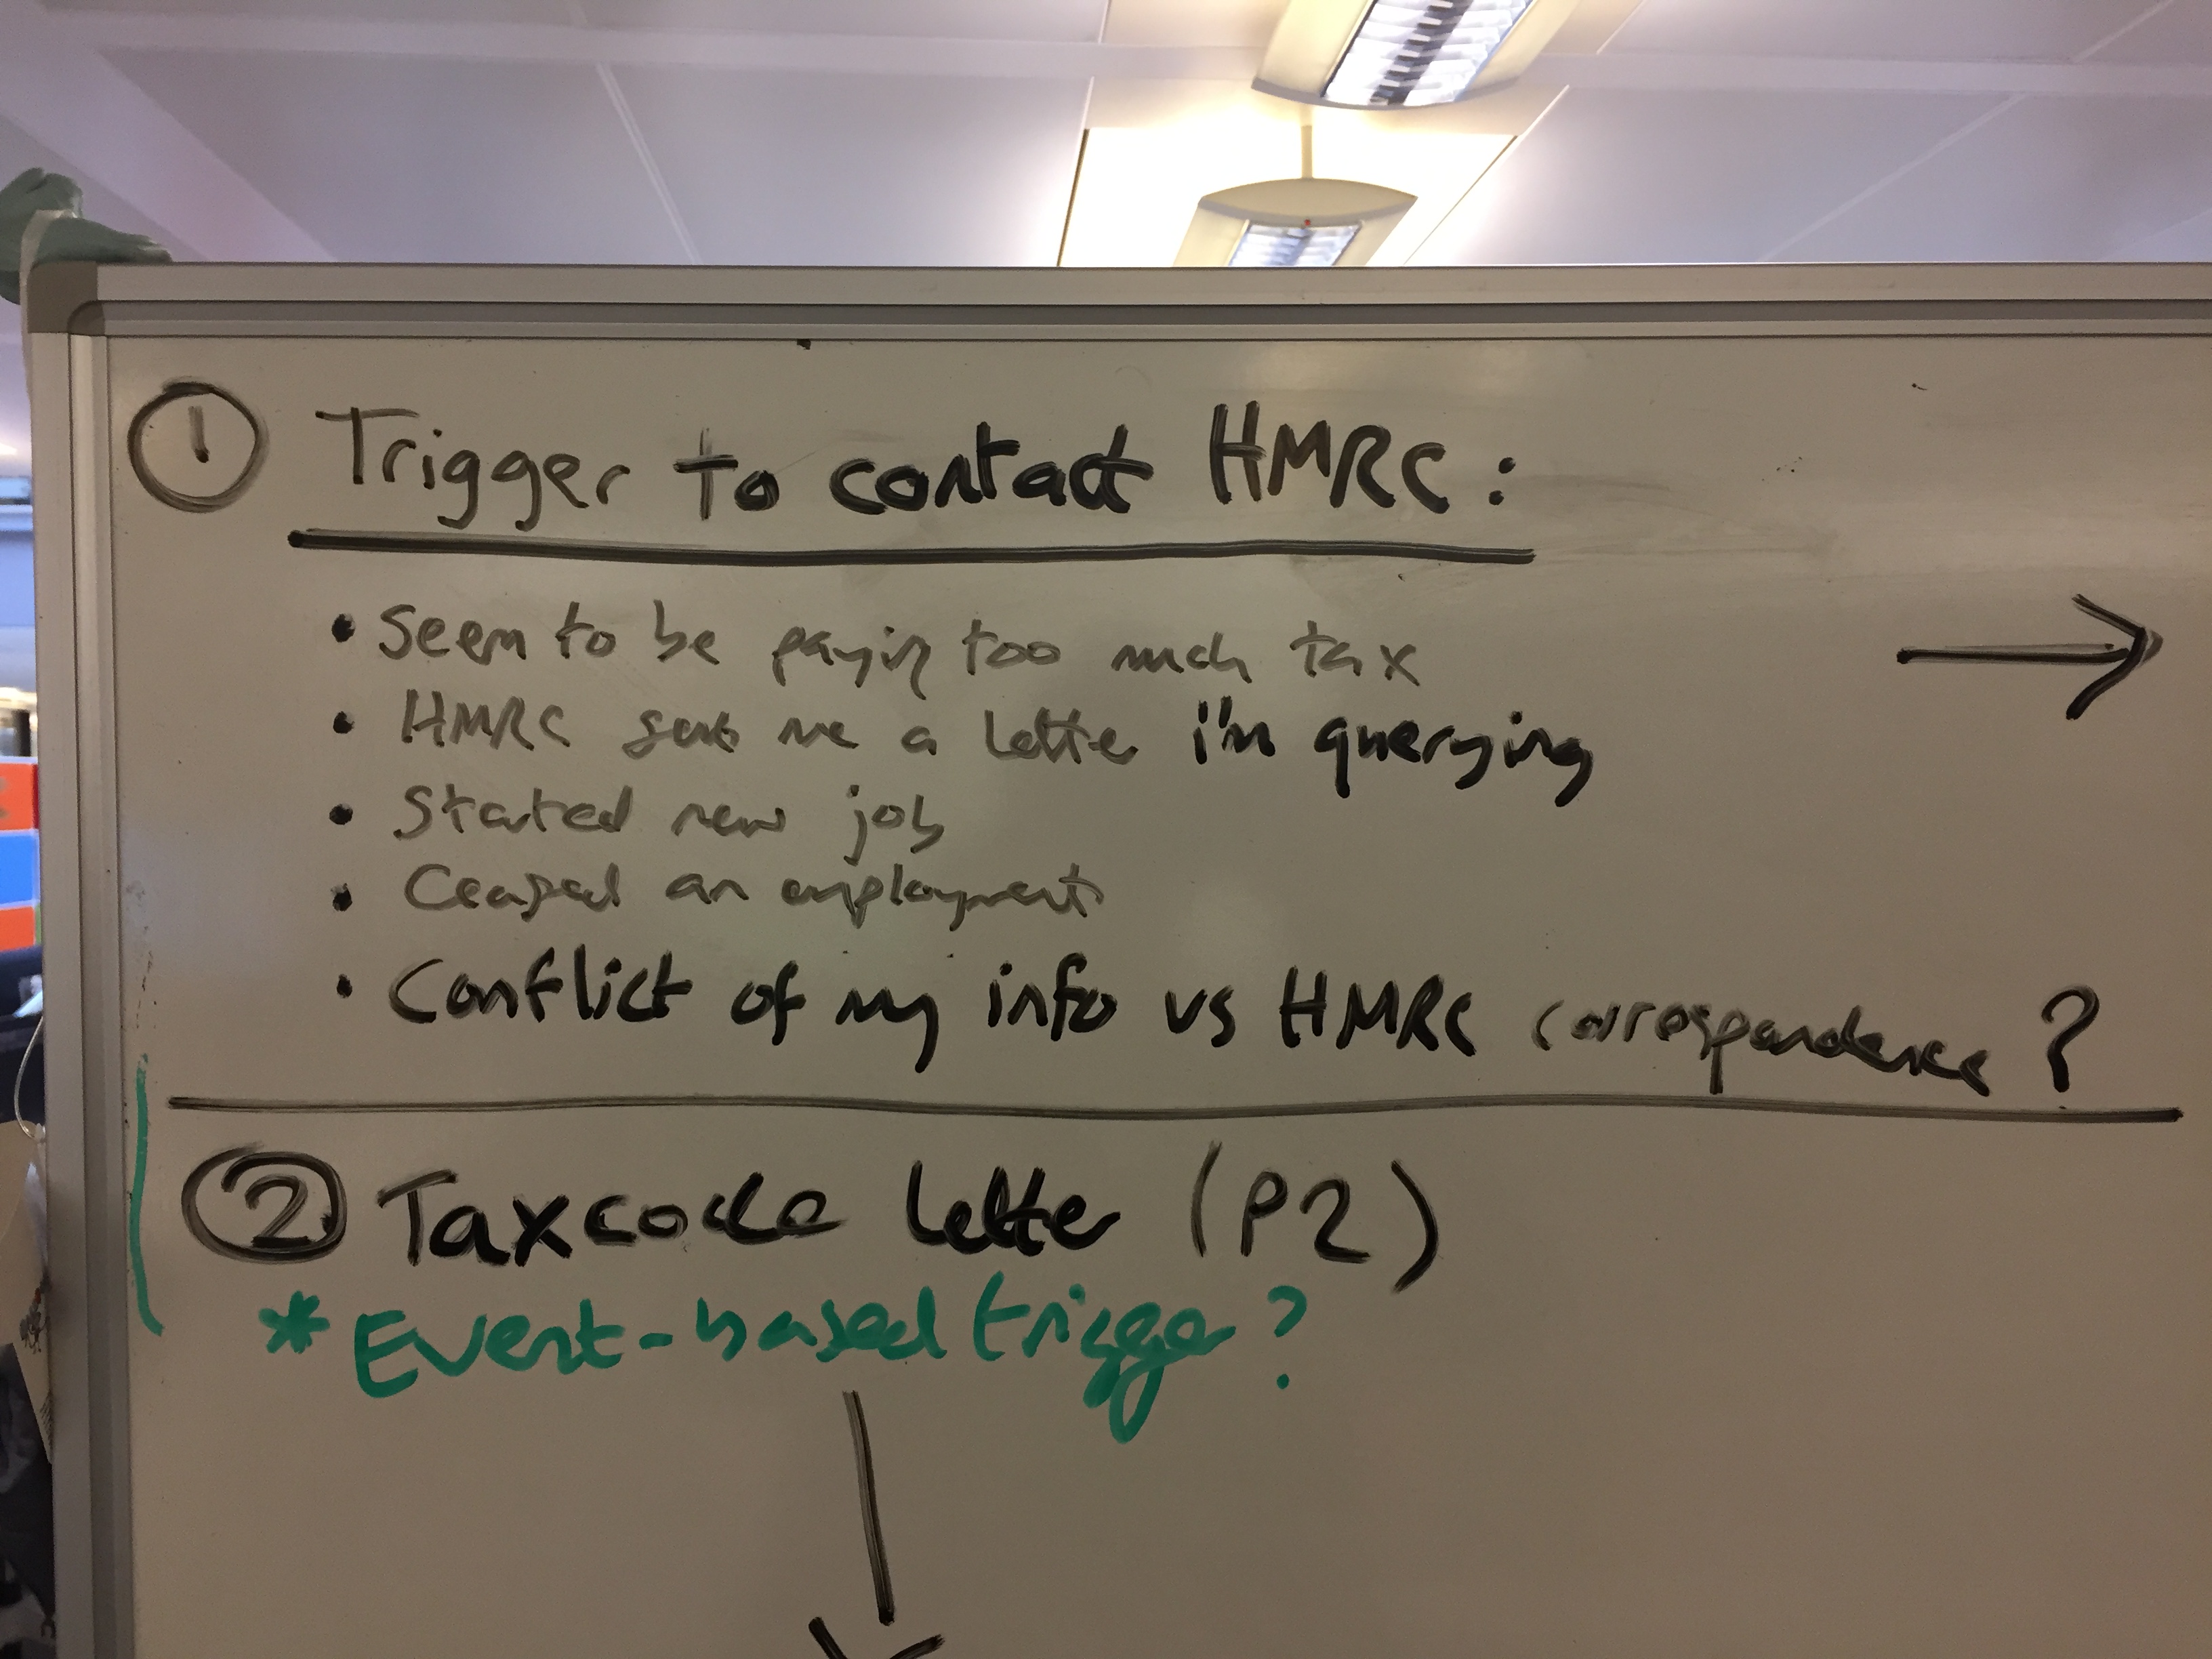 ① Trigger to contact HMRC:
• Seem to be paying too much tax
• HMRC sent me a letter i'm querying
• Started new job
• Ceased an employment
• Conflict of my info vs HMRC correspondence?
② Taxcode letter (P2)
* Event-based trigger?